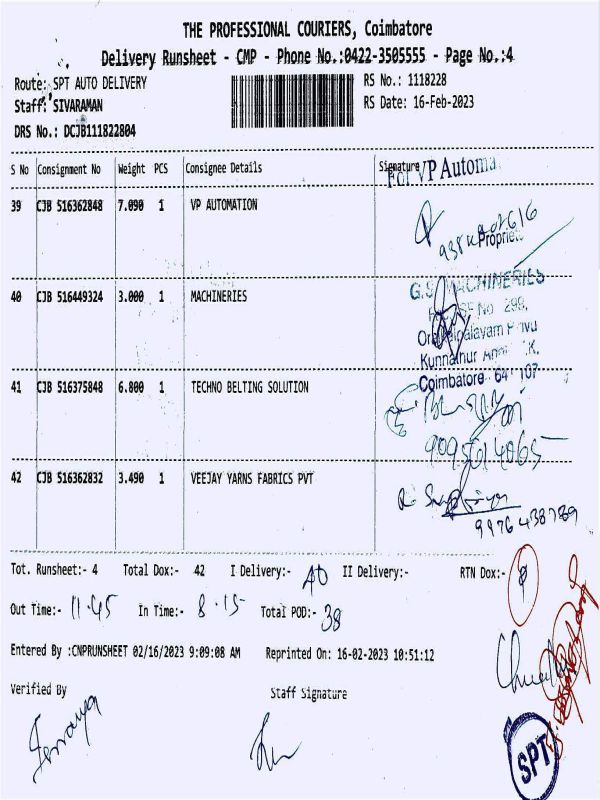 THE PROFESSIONAL COURIERS, Coimbatore
Delivery Runsheet - CMP - Phone No.:0422-3505555 - Page No.:4
Route: SPT AUTO DELIVERY
RS No.: 1118228
Staff: SIVARAMAN
RS Date: 16-Feb-2023
DRS No.: DCJB111822804
S No Consignment No Weight PCS Consignee Details Signature
For VP Automa
39 CJB 516362848 7.090 1 VP AUTOMATION
Propriet
40 CJB 516449324 3.000 1 MACHINERIES
G.S MACHINERIES
SF No 298,
Kunnathur
Coimbatore 641 107
41 CJB 516375848 6.800 1 TECHNO BELTING SOLUTION
9095614065
42 CJB 516362832 3.490 1 VEEJAY YARNS FABRICS PVT
9976438789
Tot. Runsheet:- 4 Total Dox:- 42 I Delivery:- 40 II Delivery:- RTN Dox:-
Out Time:- 11.45 In Time:- 8.15 Total POD:- 38
Entered By :CNPRUNSHEET 02/16/2023 9:09:08 AM Reprinted On: 16-02-2023 10:51:12
Verified By Staff Signature
SPT